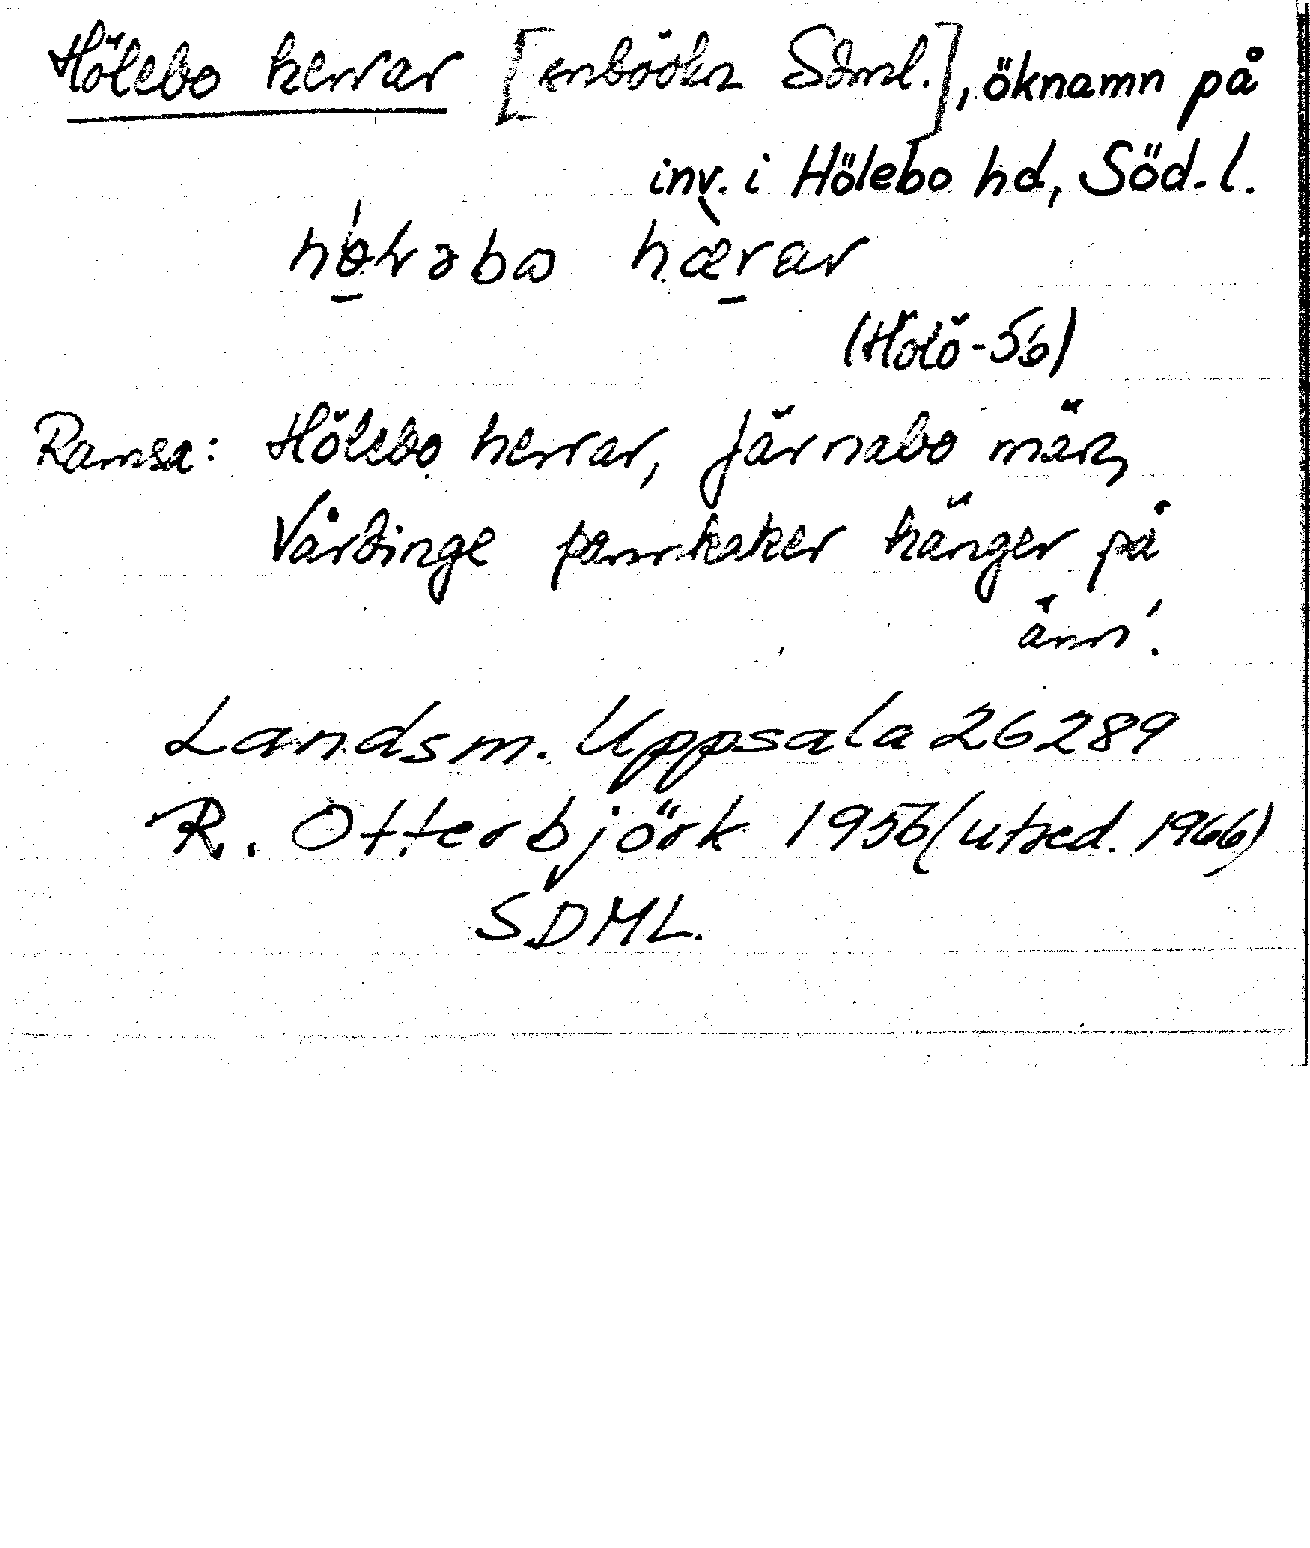 Hölebo herrar [inböökn Söml.], öknamn på
inv. i Hölebo hd, Söd.l.
(Hölö-56)
Ramsa: Hölebo herrar, Järnabo mära,
Vårdinge pannkaker hänger på
änn'.
Landsm. Uppsala 26289
R. Otterbjörk 1956 (utred. 1966)
SDML.